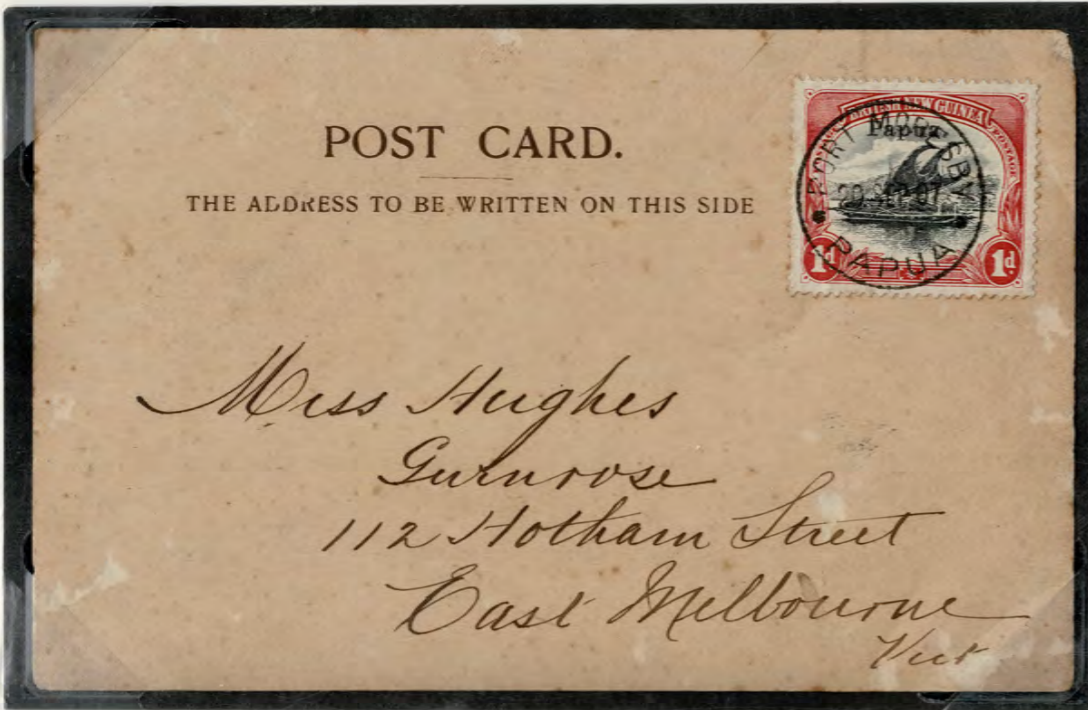 POST CARD.
THE ADDRESS TO BE WRITTEN ON THIS SIDE
BRITISH NEW GUINEA
POSTAGE POSTAGE
Papua
PORT MORESBY
20 SEP 07
PAPUA
1d 1d
Miss Hughes
Gurnrose
112 Hotham Street
East Melbourne
Vict